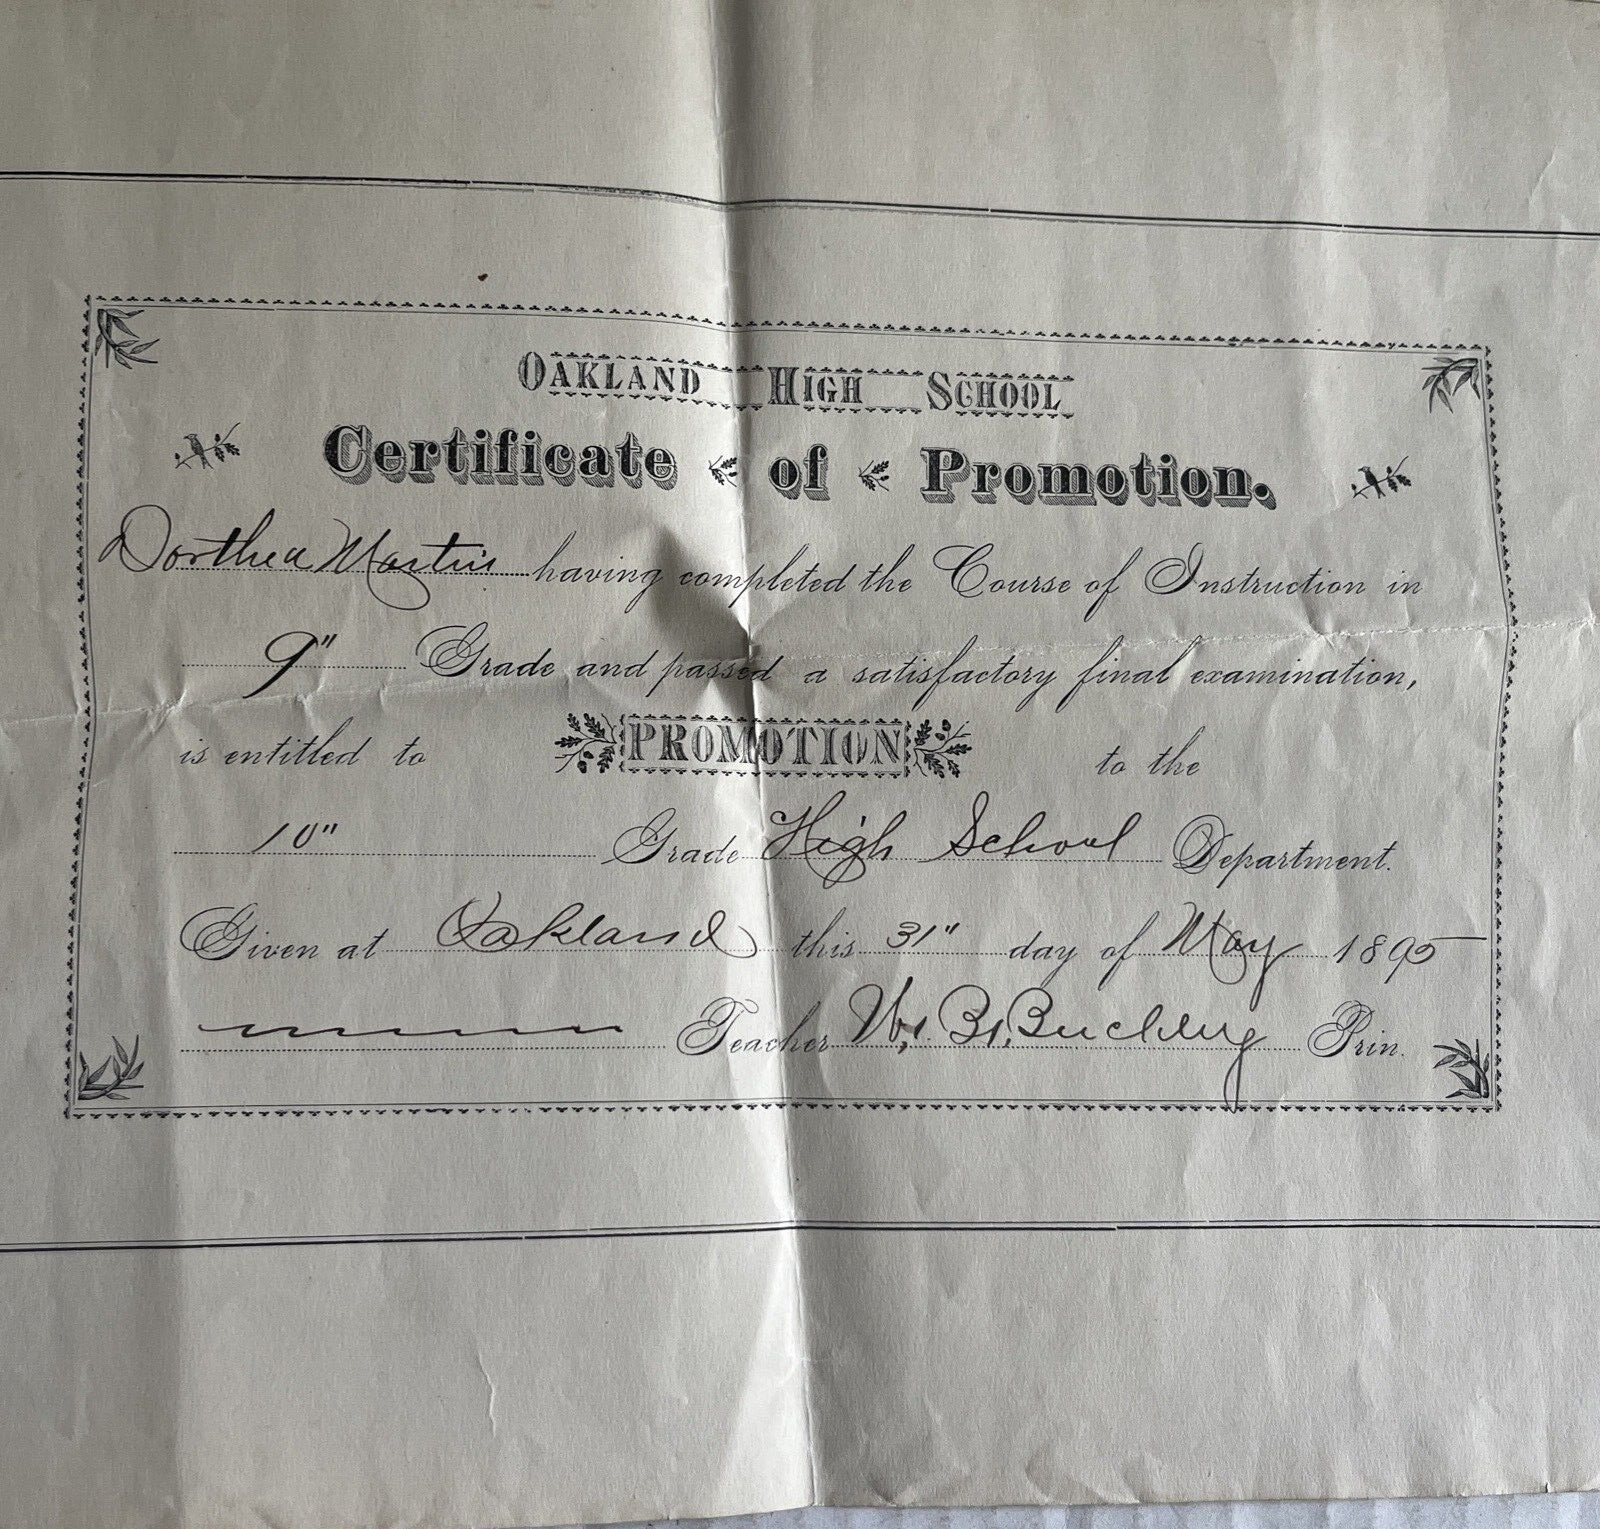 OAKLAND HIGH SCHOOL
Certificate of Promotion.
Dorthea Martin having completed the Course of Instruction in
9" Grade and passed a satisfactory final examination,
is entitled to PROMOTION to the
10" Grade High School Department.
Given at Oakland this 31" day of May 1895
Teacher W. B. Buckley Prin.